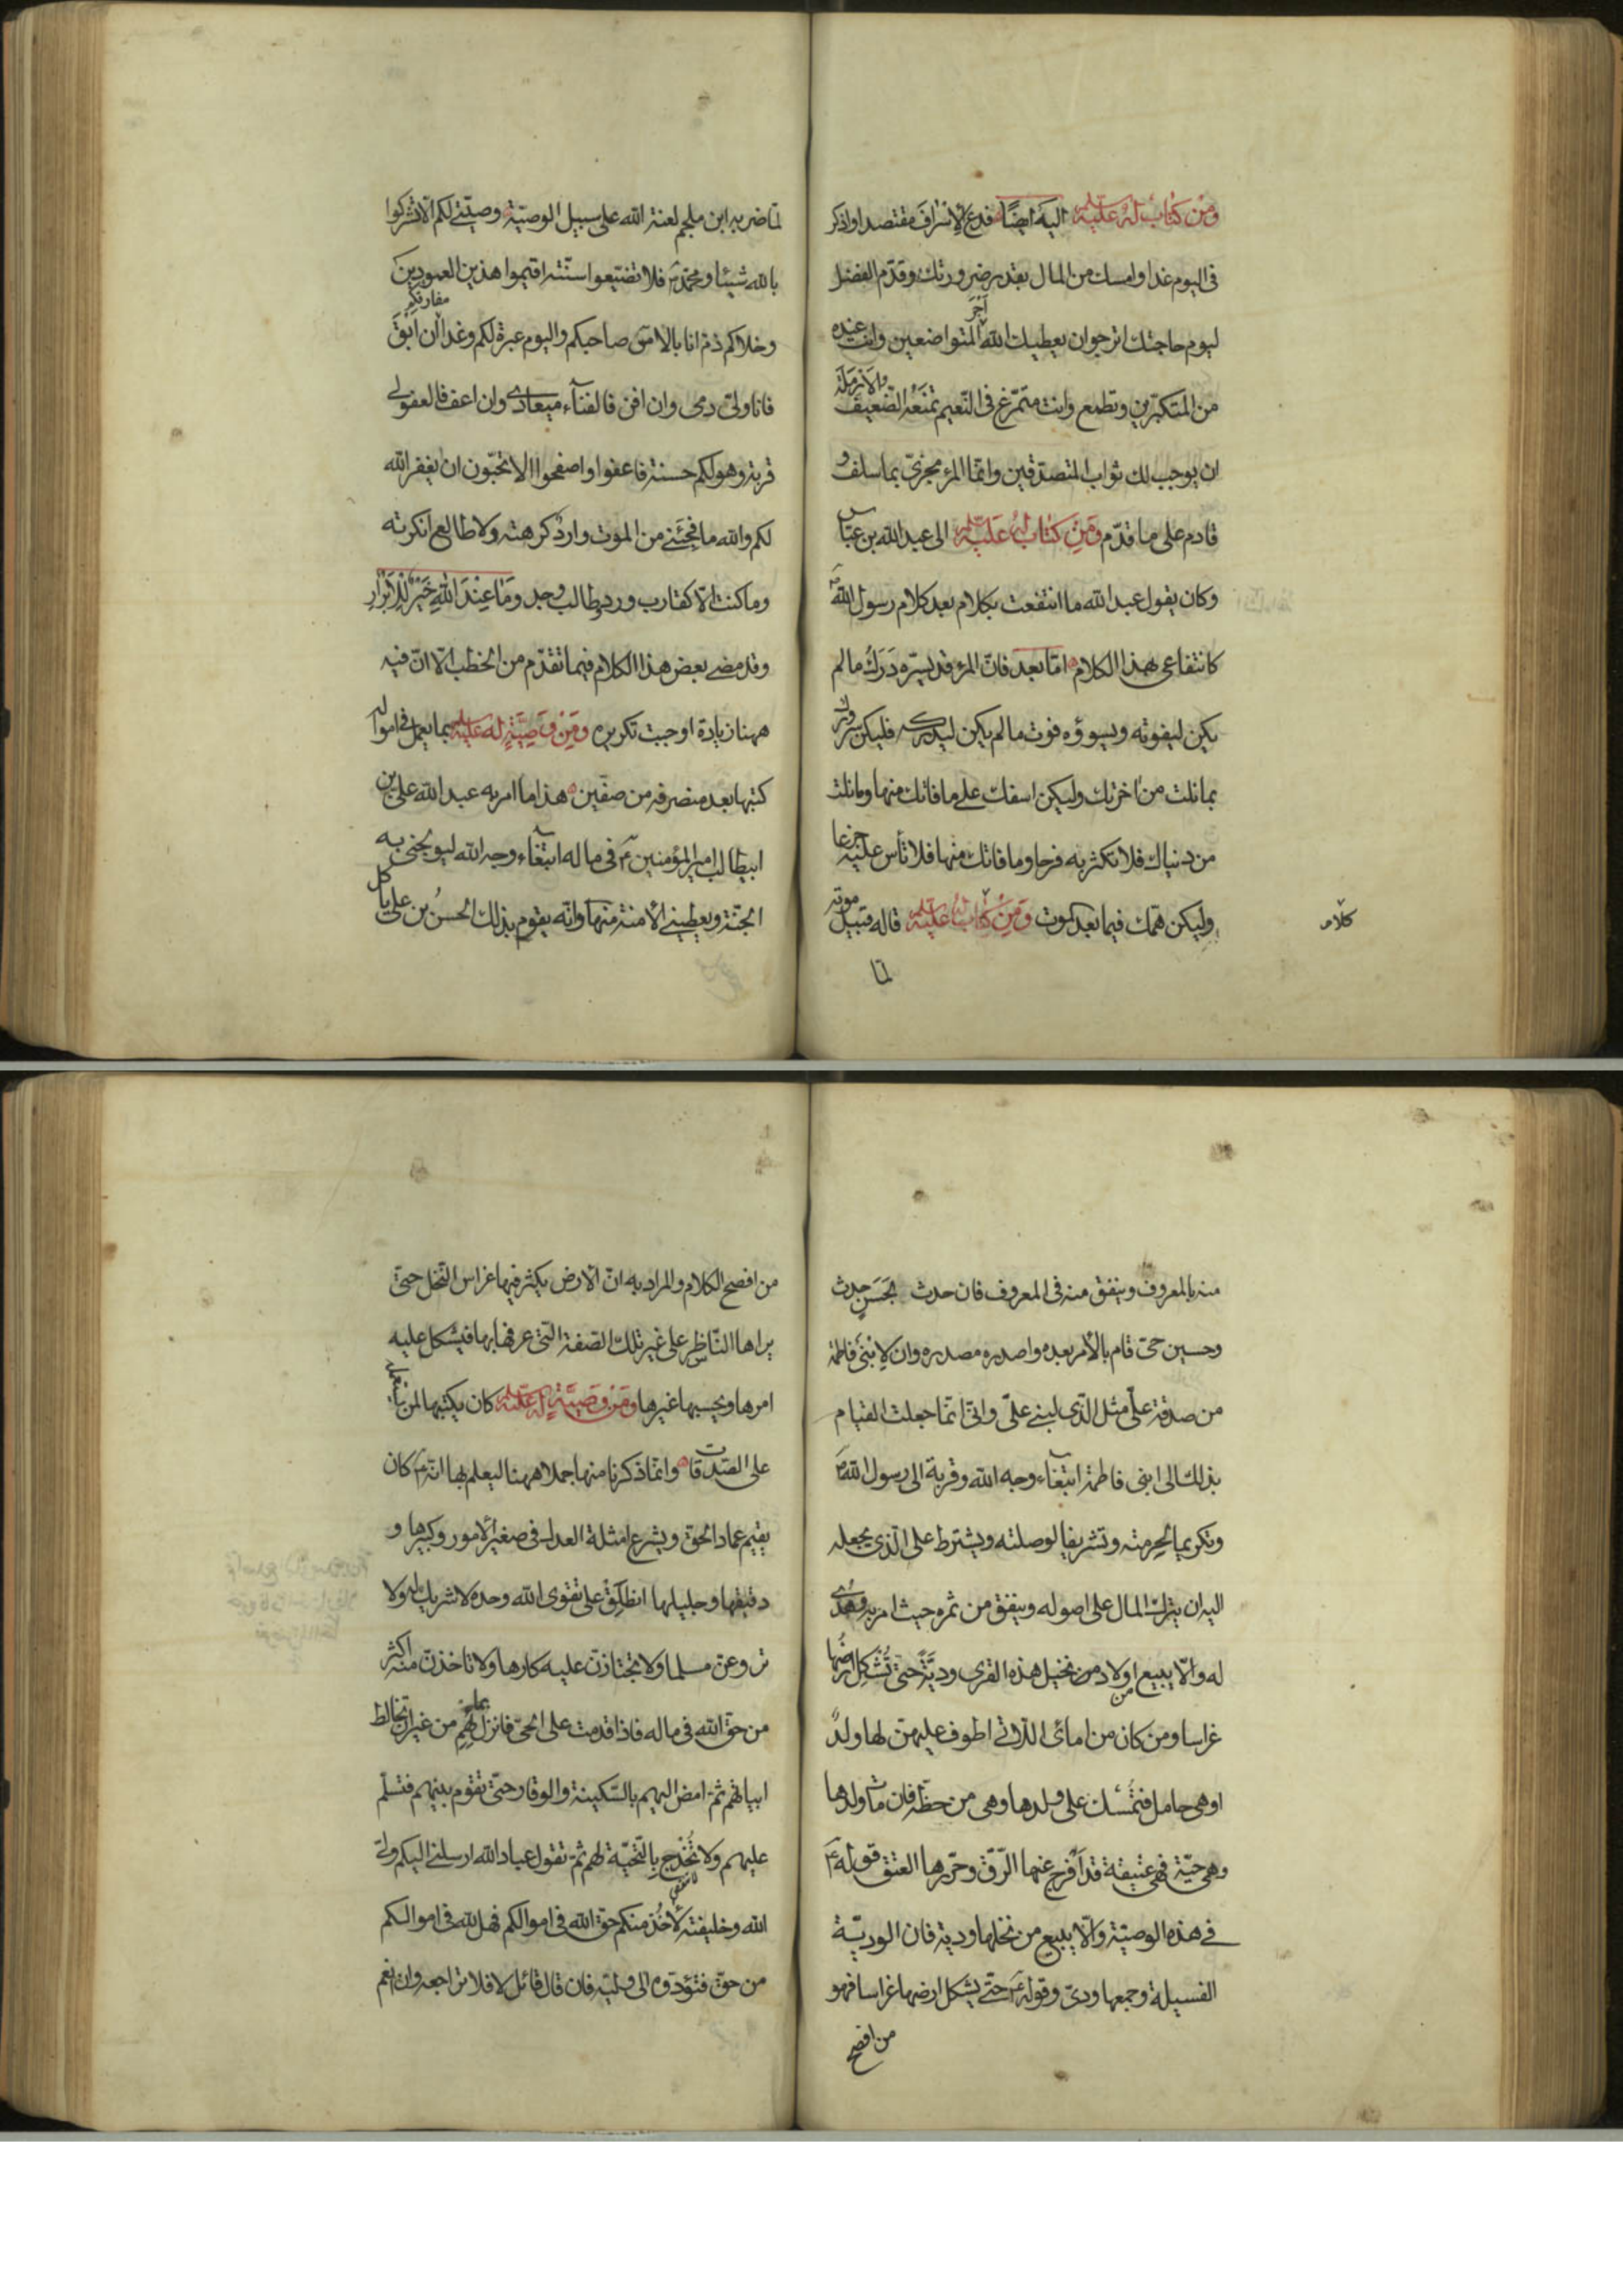 ومن كتاب له عليه السلم اليه ايضا فدع الاسراف مقتصدا واذكر
فى اليوم غدا وامسك من المال بقدر ضرورتك وقدّم الفضل
ليوم حاجتك اترجوان يعطيك الله اجر المتواضعين وانت عنده
من المتكبّرين وتطمع وانت متمرّغ فى النّعيم تمنعه الضّعيف والارملة
ان يوجب لك ثواب المتصدّقين وانّما المرء مجزىّ بما سلف و
قادم على ما قدّم ومن كتاب له عليه السلم الى عبد الله بن عبّاس
وكان يقول عبد الله ما انتفعت بكلام بعد كلام رسول الله ص
كانتفاعى بهذا الكلام امّا بعد فانّ المرء قد يسرّه درك ما لم
يكن ليفوته ويسوؤه فوت ما لم يكن ليدركه فليكن سرورك
بما نلت من اخرتك وليكن اسفك على ما فاتك منها وما نلت
من دنياك فلا تكثر به فرحا وما فاتك منها فلا تأس عليه جزعا
وليكن همّك فيما بعد الموت ومن كتاب له عليه السلم قاله قبيل موته
كلام
لمّا
لمّا ضربه ابن ملجم لعنه الله على سبيل الوصيّة وصيّتى لكم الّا تشركوا
بالله شيئا ومحمّد ص فلا تضيّعوا سنّته اقيموا هذين العمودين
وخلاكم ذمّ انا بالامس صاحبكم واليوم عبرة لكم وغدا مفارقكم ان ابق
فانا ولىّ دمى وان افن فالفناء ميعادى وان اعف فالعفو لى
قربة وهو لكم حسنة فاعفوا واصفحوا الا تحبّون ان يغفر الله
لكم والله ما فجئنى من الموت وارد كرهته ولا طالع انكرته
وما كنت الّا كقارب ورد وطالب وجد وما عند الله خير للابرار
وقد مضى بعض هذا الكلام فيما تقدّم من الخطب الّا انّ فيه
ههنا زيادة اوجبت تكريره ومن وصيّة له عليه السلم بما يعمل فى امواله
كتبها بعد منصرفه من صفّين هذا ما امر به عبد الله علىّ بن
ابيطالب امير المؤمنين ع فى ماله ابتغاء وجه الله ليولجنى به
الجنّة ويعطينى الامنة منها وانّه يقوم بذلك الحسن بن على يأكل
منه بالمعروف وينفق منه فى المعروف فان حدث بحسن حدث
وحسين حىّ قام بالامر بعده واصدره مصدره وان لابنى فاطمة
من صدقة علىّ مثل الّذى لبنى علىّ وانّى انّما جعلت القيام
بذلك الى ابنى فاطمة ابتغاء وجه الله وقربة الى رسول الله ص
وتكريما لحرمته وتشريفا لوصلته ويشترط على الّذى يجعله
اليه ان يترك المال على اصوله وينفق من ثمره حيث امر به وهدى
له والّا يبيع من اولاد نخيل هذه القرى وديّة حتّى تشكل ارضها
غراسا ومن كان من امائى اللّاتى اطوف عليهنّ لها ولد
اوهى حامل فتمسك على ولدها وهى من حظّه فان مات ولدها
وهى حيّة فهى عتيقة قد افرج عنها الرّقّ وحرّرها العتق قوله ع
فى هذه الوصيّة والّا يبيع من نخلها ودية فان الوديّة
الفسيلة وجمعها ودىّ وقوله ع حتّى يشكل ارضها غراسا فهو
من افصح
من افصح الكلام والمراد به انّ الارض يكثر فيها غراس النّخل حتّى
يراها النّاظر على غير تلك الصّفة التّى عرفها بها فيشكل عليه
امرها ويحسبها غيرها ومن وصيّة له عليه السلم كان يكتبها لمن يستعمله
على الصّدقات وانّما ذكرنا منها جملا ههنا ليعلم بها انّه ع كان
يقيم عماد الحقّ ويشرع امثلة العدل فى صغير الامور وكبيرها و
دقيقها وجليلها انطلق على تقوى الله وحده لا شريك له ولا
تروعنّ مسلما ولا تجتازنّ عليه كارها ولا تأخذنّ منه اكثر
من حقّ الله فى ماله فاذا قدمت على الحىّ فانزل بمائهم من غير ان تخالط
ابياتهم ثمّ امض اليهم بالسّكينة والوقار حتّى تقوم بينهم فتسلّم
عليهم ولا تخدج بالتّحيّة لهم ثمّ تقول عباد الله ارسلنى اليكم ولىّ
الله وخليفته لاخذ منكم حقّ الله فى اموالكم فهل لله فى اموالكم
من حقّ فتؤدّوه الى وليّه فان قال قائل لا فلا تراجعه وان انعم